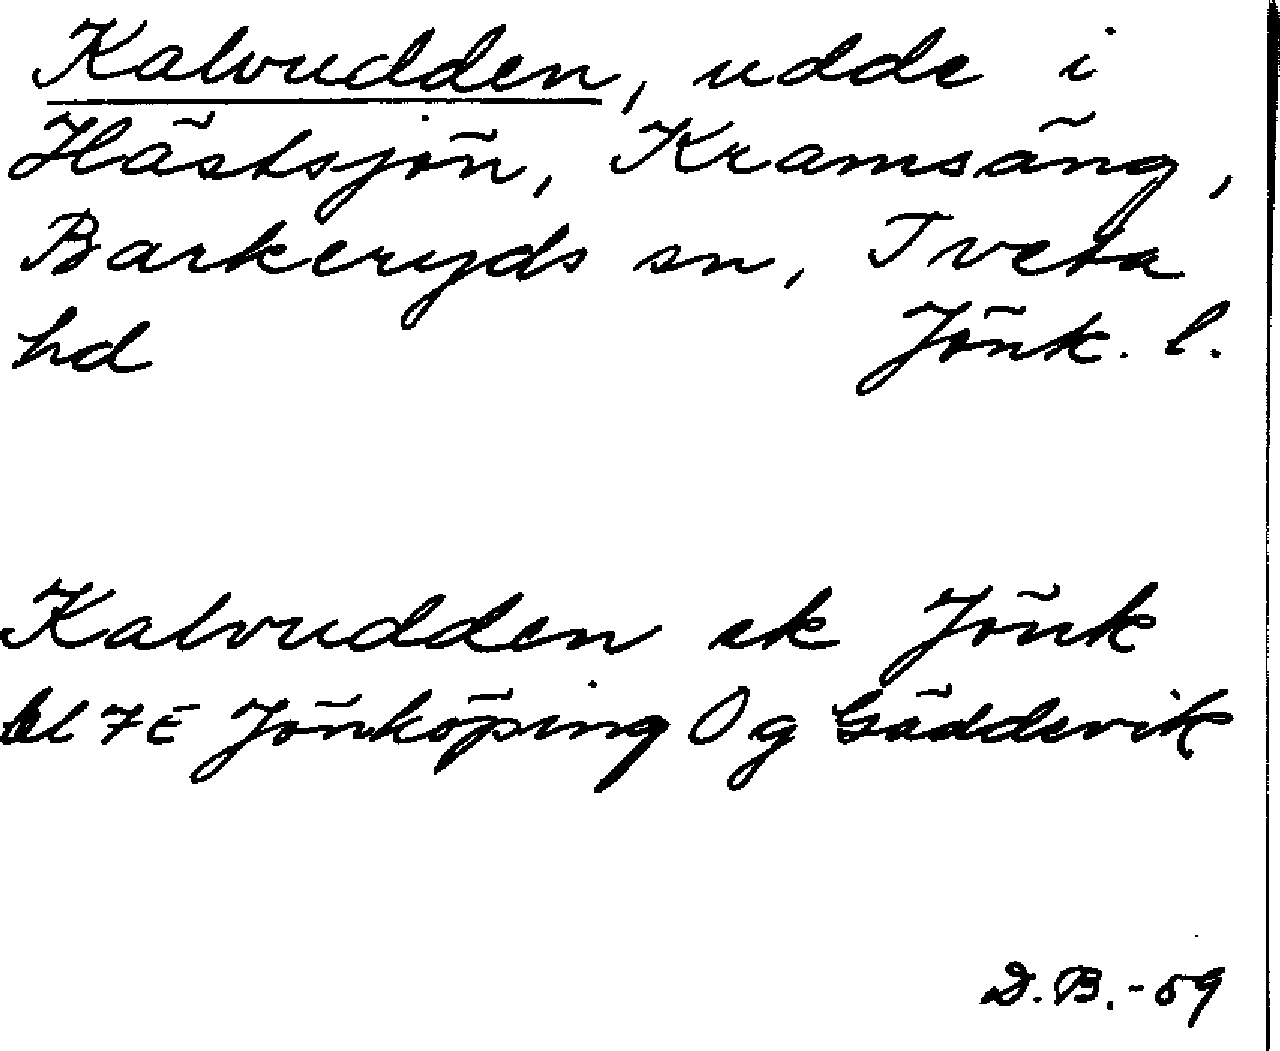 Kalvudden, udde i
Hästsjön, Kramsäng,
Barkeryds sn, Tveta
hd Jönk. l.
Kalvudden ek Jönk
bl 7E Jönköping Og Gäddevik
D.B.-59